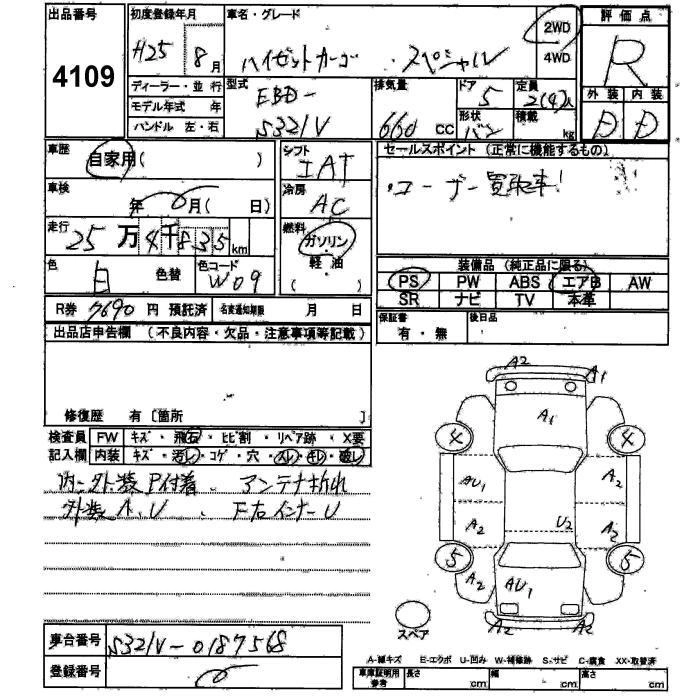 出品番号 初度登録年月 車名・グレード 評価点
4109 H25 8月 ハイゼットカーゴ スペシャル 2WD 4WD R
ディーラー・並行 型式 排気量 ドア 定員 外装 内装
モデル年式 年 EBD- 5 2(4)人
ハンドル 左・右 S321V 660 CC 形状 バン 積載 kg D D
車歴 自家用( ) シフト IAT セールスポイント (正常に機能するもの)
車検 年 月( 日) 冷房 AC ・ユーザー買取車!
走行 25万4千835km 燃料 ガソリン・軽・油 ( )
色 白 色替 色コード W09
装備品 (純正品に限る)
PS PW ABS エアB AW
SR ナビ TV 本革
R券 7690円 預託済 名変通知期限 月 日
保証書 有・無 後日品
出品店申告欄 (不良内容・欠品・注意事項等記載)
修復歴 有 [箇所 ]
検査員 FW キズ・飛石・ヒビ割・リペア跡・X要
記入欄 内装 キズ・汚レ・コゲ・穴・スレ・キレ・破レ
内・外装P付着 アンテナ折れ
外装A、U 下右インナーU
A2 A1
A1
4 4
AU1 A2
A2 U2 A2
5 5
A2 AU1 A2
A2 A2
スペア
車台番号 S321V-0187568
登録番号
A-線キズ E-エクボ U-凹み W-補修跡 S-サビ C-腐食 XX-取替済
車庫証明用参考 長さ cm 幅 cm 高さ cm